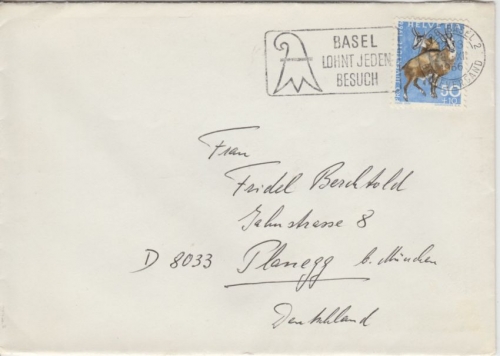 BASEL
LOHNT JEDEN
BESUCH
HELVETIA
50
Frau
Fridel Berchtold
Jahnstrasse 8
D 8033 Planegg b. München
Deutschland